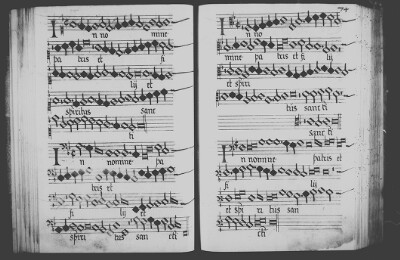 In no mine
pa tris et fi
lij et
spiritus sanc
ti
In nomine pa
tris et
fi lij et
spiri tus san cti
74
In no
mine pa tris et fi lij
et spiri
tus sancti
sancti
In nomine patris et
fi lij
et spi ri tus san
cti